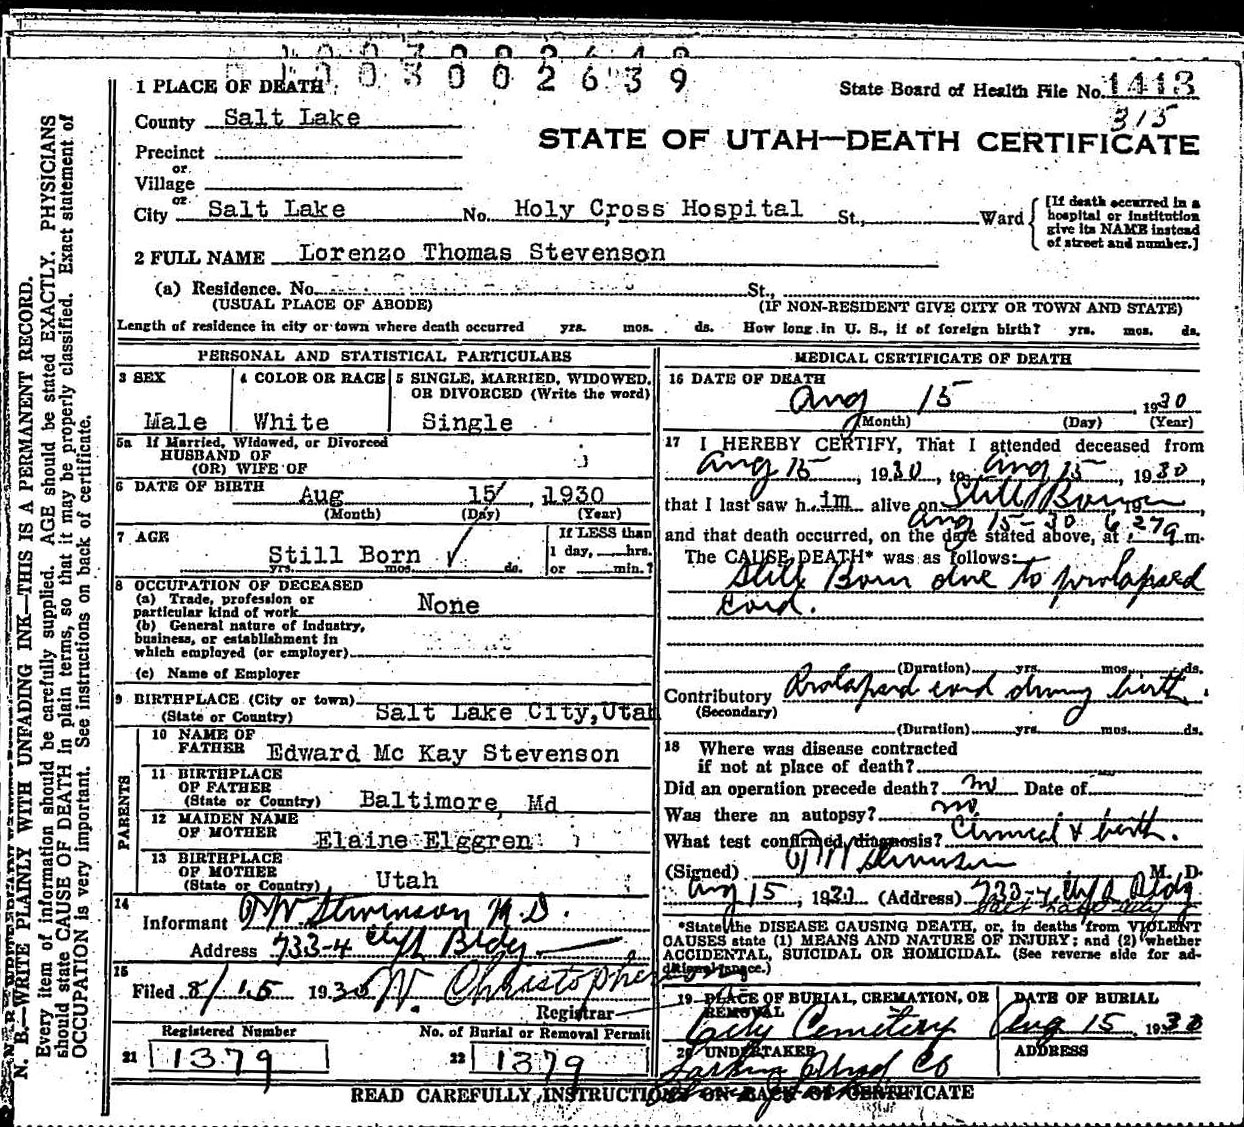 1003002639
1 PLACE OF DEATH
State Board of Health File No. 1413
315
County Salt Lake
STATE OF UTAH—DEATH CERTIFICATE
Precinct
or
Village
or
City Salt Lake No. Holy Cross Hospital St., Ward
[If death occurred in a
hospital or institution
give its NAME instead
of street and number.]
2 FULL NAME Lorenzo Thomas Stevenson
(a) Residence. No. St.,
(USUAL PLACE OF ABODE) (IF NON-RESIDENT GIVE CITY OR TOWN AND STATE)
Length of residence in city or town where death occurred yrs. mos. ds. How long in U. S., if of foreign birth? yrs. mos. ds.
PERSONAL AND STATISTICAL PARTICULARS
3 SEX
Male
4 COLOR OR RACE
White
5 SINGLE, MARRIED, WIDOWED,
OR DIVORCED (Write the word)
Single
5a If Married, Widowed, or Divorced
HUSBAND OF
(OR) WIFE OF
6 DATE OF BIRTH
Aug 15, 1930
(Month) (Day) (Year)
7 AGE
Still Born
yrs. mos. ds.
If LESS than
1 day, hrs.
or min.?
8 OCCUPATION OF DECEASED
(a) Trade, profession or
particular kind of work None
(b) General nature of industry,
business, or establishment in
which employed (or employer)
(c) Name of Employer
9 BIRTHPLACE (City or town)
(State or Country) Salt Lake City, Utah
PARENTS
10 NAME OF
FATHER Edward Mc Kay Stevenson
11 BIRTHPLACE
OF FATHER
(State or Country) Baltimore, Md
12 MAIDEN NAME
OF MOTHER Elaine Elggren
13 BIRTHPLACE
OF MOTHER
(State or Country) Utah
14
Informant Stevenson M.D.
Address 733-4 Bldg
15
Filed 8/15 1930 W. Christopherson
Registrar
Registered Number
21 1379
No. of Burial or Removal Permit
22 1379
MEDICAL CERTIFICATE OF DEATH
16 DATE OF DEATH
Aug 15, 1930
(Month) (Day) (Year)
17 I HEREBY CERTIFY, That I attended deceased from
Aug 15, 1930, to Aug 15, 1930
that I last saw h im alive on Still Born, 19
Aug 15-30 6 27 a
and that death occurred, on the date stated above, at m.
The CAUSE DEATH* was as follows:
Still Born due to prolapsed
cord.
(Duration) yrs. mos. ds.
Contributory Prolapsed cord during birth.
(Secondary)
(Duration) yrs. mos. ds.
18 Where was disease contracted
if not at place of death?
Did an operation precede death? no Date of
Was there an autopsy? no
What test confirmed diagnosis? Clinical & birth.
(Signed) Stevenson M. D.
Aug 15, 1930 (Address) 733-4 Bldg
Salt Lake City
*State the DISEASE CAUSING DEATH, or, in deaths from VIOLENT
CAUSES state (1) MEANS AND NATURE OF INJURY; and (2) whether
ACCIDENTAL, SUICIDAL OR HOMICIDAL. (See reverse side for ad-
ditional space.)
19 PLACE OF BURIAL, CREMATION, OR
REMOVAL
City Cemetery
DATE OF BURIAL
Aug 15, 1930
20 UNDERTAKER
Co
ADDRESS
READ CAREFULLY INSTRUCTIONS ON BACK OF CERTIFICATE
N. B.—WRITE PLAINLY WITH UNFADING INK—THIS IS A PERMANENT RECORD.
Every item of information should be carefully supplied. AGE should be stated EXACTLY. PHYSICIANS
should state CAUSE OF DEATH in plain terms, so that it may be properly classified. Exact statement of
OCCUPATION is very important. See instructions on back of certificate.